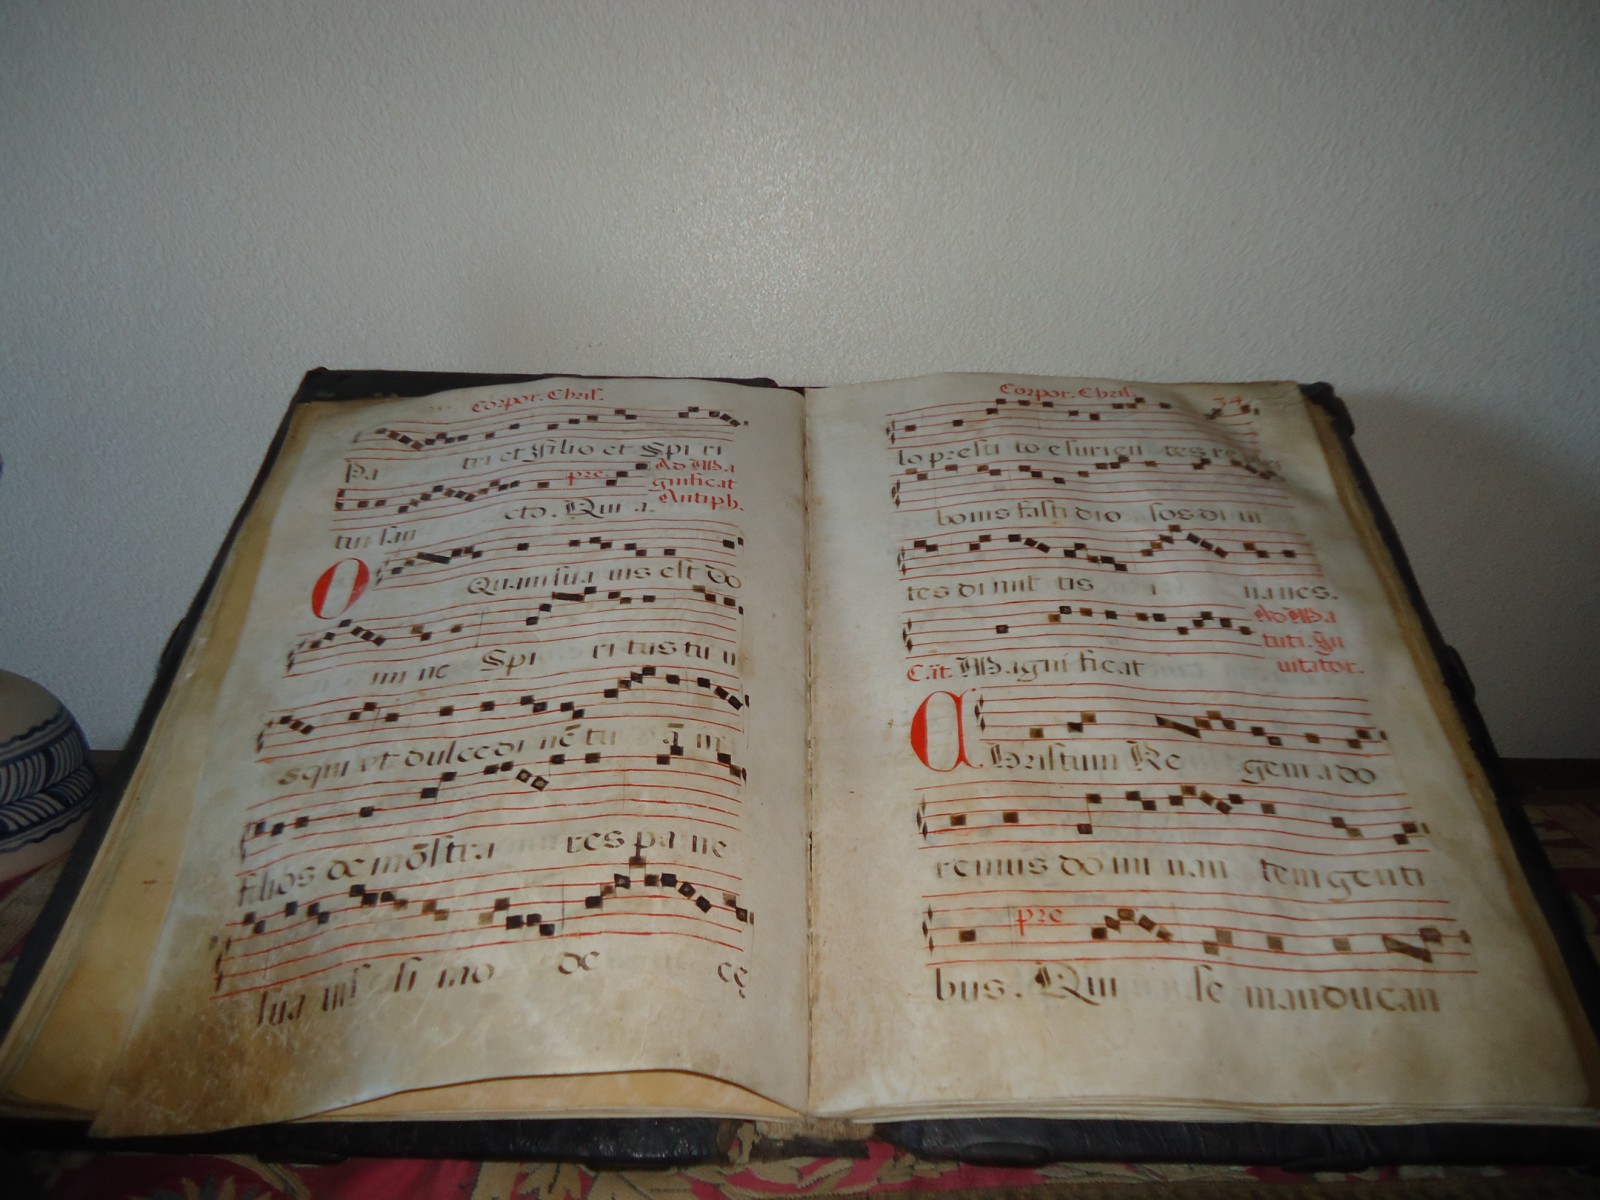 Corpor. Chris.
Pa tri et filio et Spi ri
pre Ad Ma
gnificat
Antiph.
tui san cto. Qui a.
O Quam sua uis est do
mi ne Spi ri tus tu u
s qui vt dulcedi nē tu ā in
filios de mōstra res pa ne
sua uis si mo de cę
Corpor. Chris. 34
lo presti to esurien tes re
bonis fasti dio sos di ui
tes di mit tis i nanes.
Ad Ma
tuti. Īn
uitator.
C.īt. Magni ficat
C Hristum Re gem a do
remus do mi nan tem genti
pre
bus. Qui se manducan